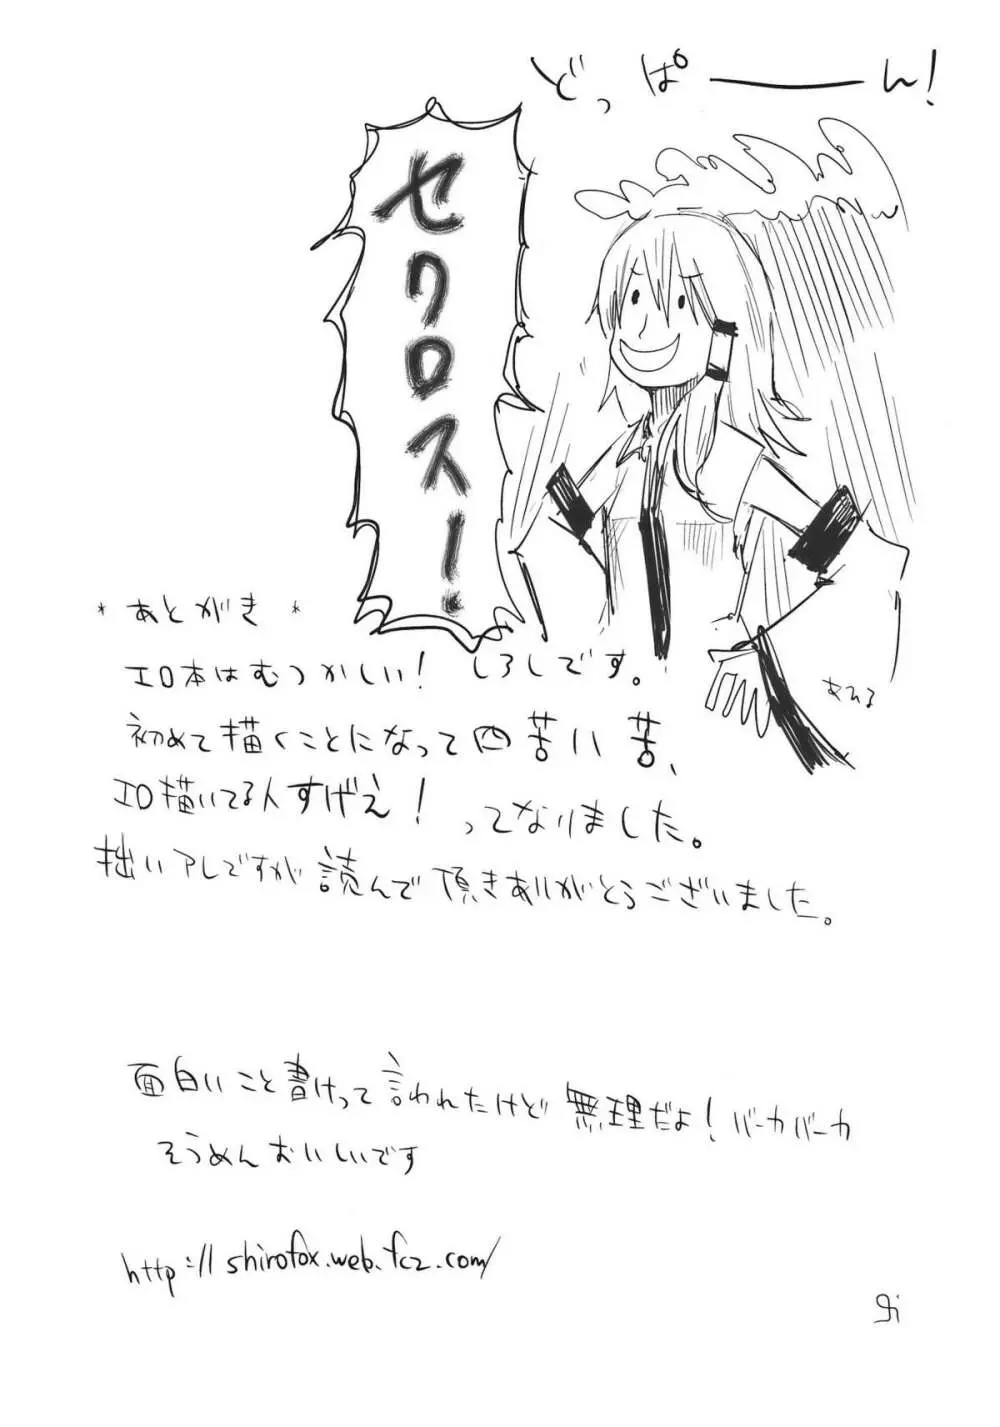 どっぱーん!
セクロスー!
*あとがき*
エロ本はむつかしい! しろしです。
初めて描くことになって四苦八苦、
エロ描いてる人すげえ! ってなりました。
拙いアレですが読んで頂きありがとうございました。
面白いこと書けって言われたけど無理だよ!バーカバーカ
そうめんおいしいです
http://shirofox.web.fc2.com/